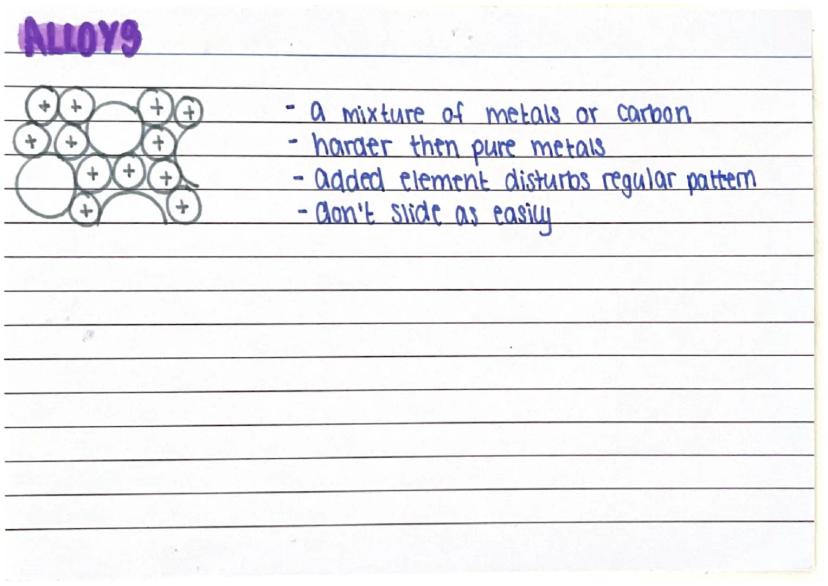 ALLOYS
+ + + +
- a mixture of metals or carbon
+ + +
- harder then pure metals
+ + +
- added element disturbs regular pattern
+ +
- don't slide as easily